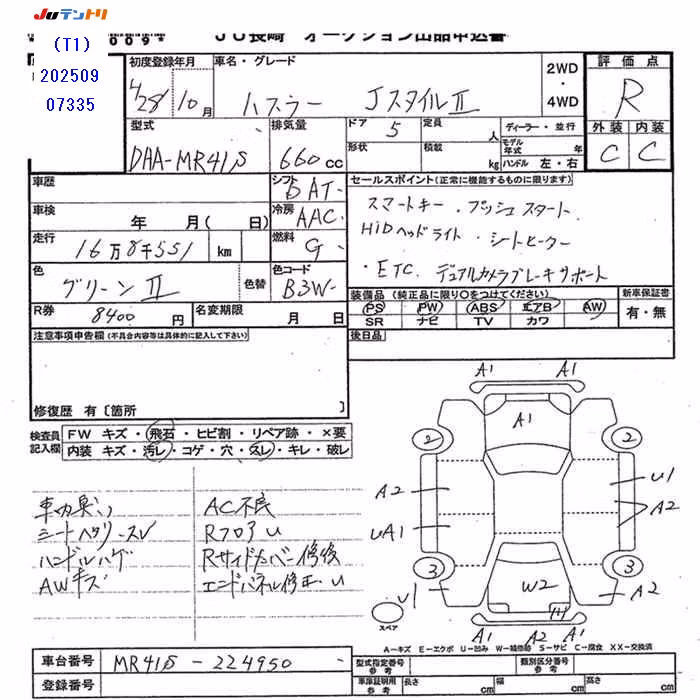 JUテントリ
009* JU長崎 オークション出品申込書
(T1)
202509
07335
初度登録年月 車名・グレード 2WD・4WD 評価点
28/10月 ハスラー JスタイルⅡ R
型式 排気量 ドア 5 定員 人 ディーラー・並行 外装 内装
DAA-MR41S 660cc 形状 積載 kg モデル年式 年 ハンドル 左・右 C C
車歴 シフト DAT セールスポイント(正常に機能するものに限ります)
車検 年 月( 日) 冷房 AAC スマートキー・プッシュスタート
走行 16万8千551 km 燃料 G HIDヘッドライト・シートヒーター
色 グリーンⅡ 色替 色コード B3W ・ETC. デュアルカメラブレーキサポート
R券 8400円 名変期限 月 日 装備品(純正品に限り○をつけてください) 新車保証書
PS PW ABS エアB AW 有・無
SR ナビ TV カワ
注意事項申告欄(不具合内容等は具体的に記入して下さい) 後日品
修復歴 有〔箇所 〕
検査員記入欄 FW キズ・飛石・ヒビ割・リペア跡・×要
内装 キズ・汚レ・コゲ・穴・気レ・キレ・破レ
車内臭い AC不良
シートヘタリ・スレ RフロアU
ハンドルハゲ Rサイドメンバー修復
AWキズ エンドパネル修正・U
A1 A1
A1
2 2
A2 U1
UA1 A2
3 3
U1 W2 A2
スペア
A1 A2 A1
A-キズ E-エクボ U-凹み W-補修跡 S-サビ C-腐食 XX-交換済
車台番号 MR41S-224950 型式指定番号 参考 類別区分番号 参考
登録番号 車庫証明用 参考 長さ cm 幅 cm 高さ cm